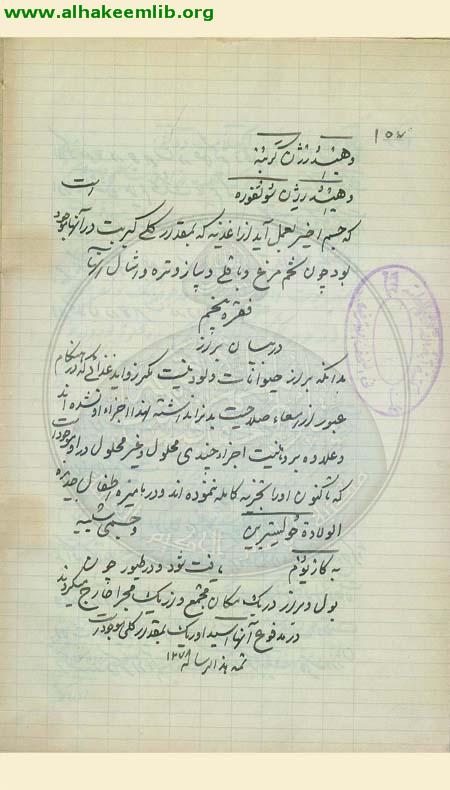 www.alhakeemlib.org
۱۵۷
و هیدرژن کربنه
و هیدرژن سولفوره است
که جسم اخیر بعمل آید از اغذیه که بمقدار کلی کبریت در آنها موجود
بود چون تخم مرغ و باقلی و پیاز و تره و امثال آنها
فقره پنجم
در بیان براز
بدانکه براز حیوانات ولود نیست مگر زواید غذائی که در هنگام
عبور از امعاء صلاحیت بدن نداشته لهذا اجزاء او نشده اند
و علاوه بر این اجزاء چندی محلول و غیر محلول در او موجود است
که تاکنون اورا تجزیه کامله ننموده اند و در اطفال جدید
الولادة کولیسترین و جسمی شبیه
به کازیوم یافت شود و در طیور چون
بول و براز در یک مکان مجتمع و از یک مجرا خارج میگردند
در مدفوع آنها اسید اوریک بمقدار کلی موجود است
تمه هذا الرساله ۱۲۷۸